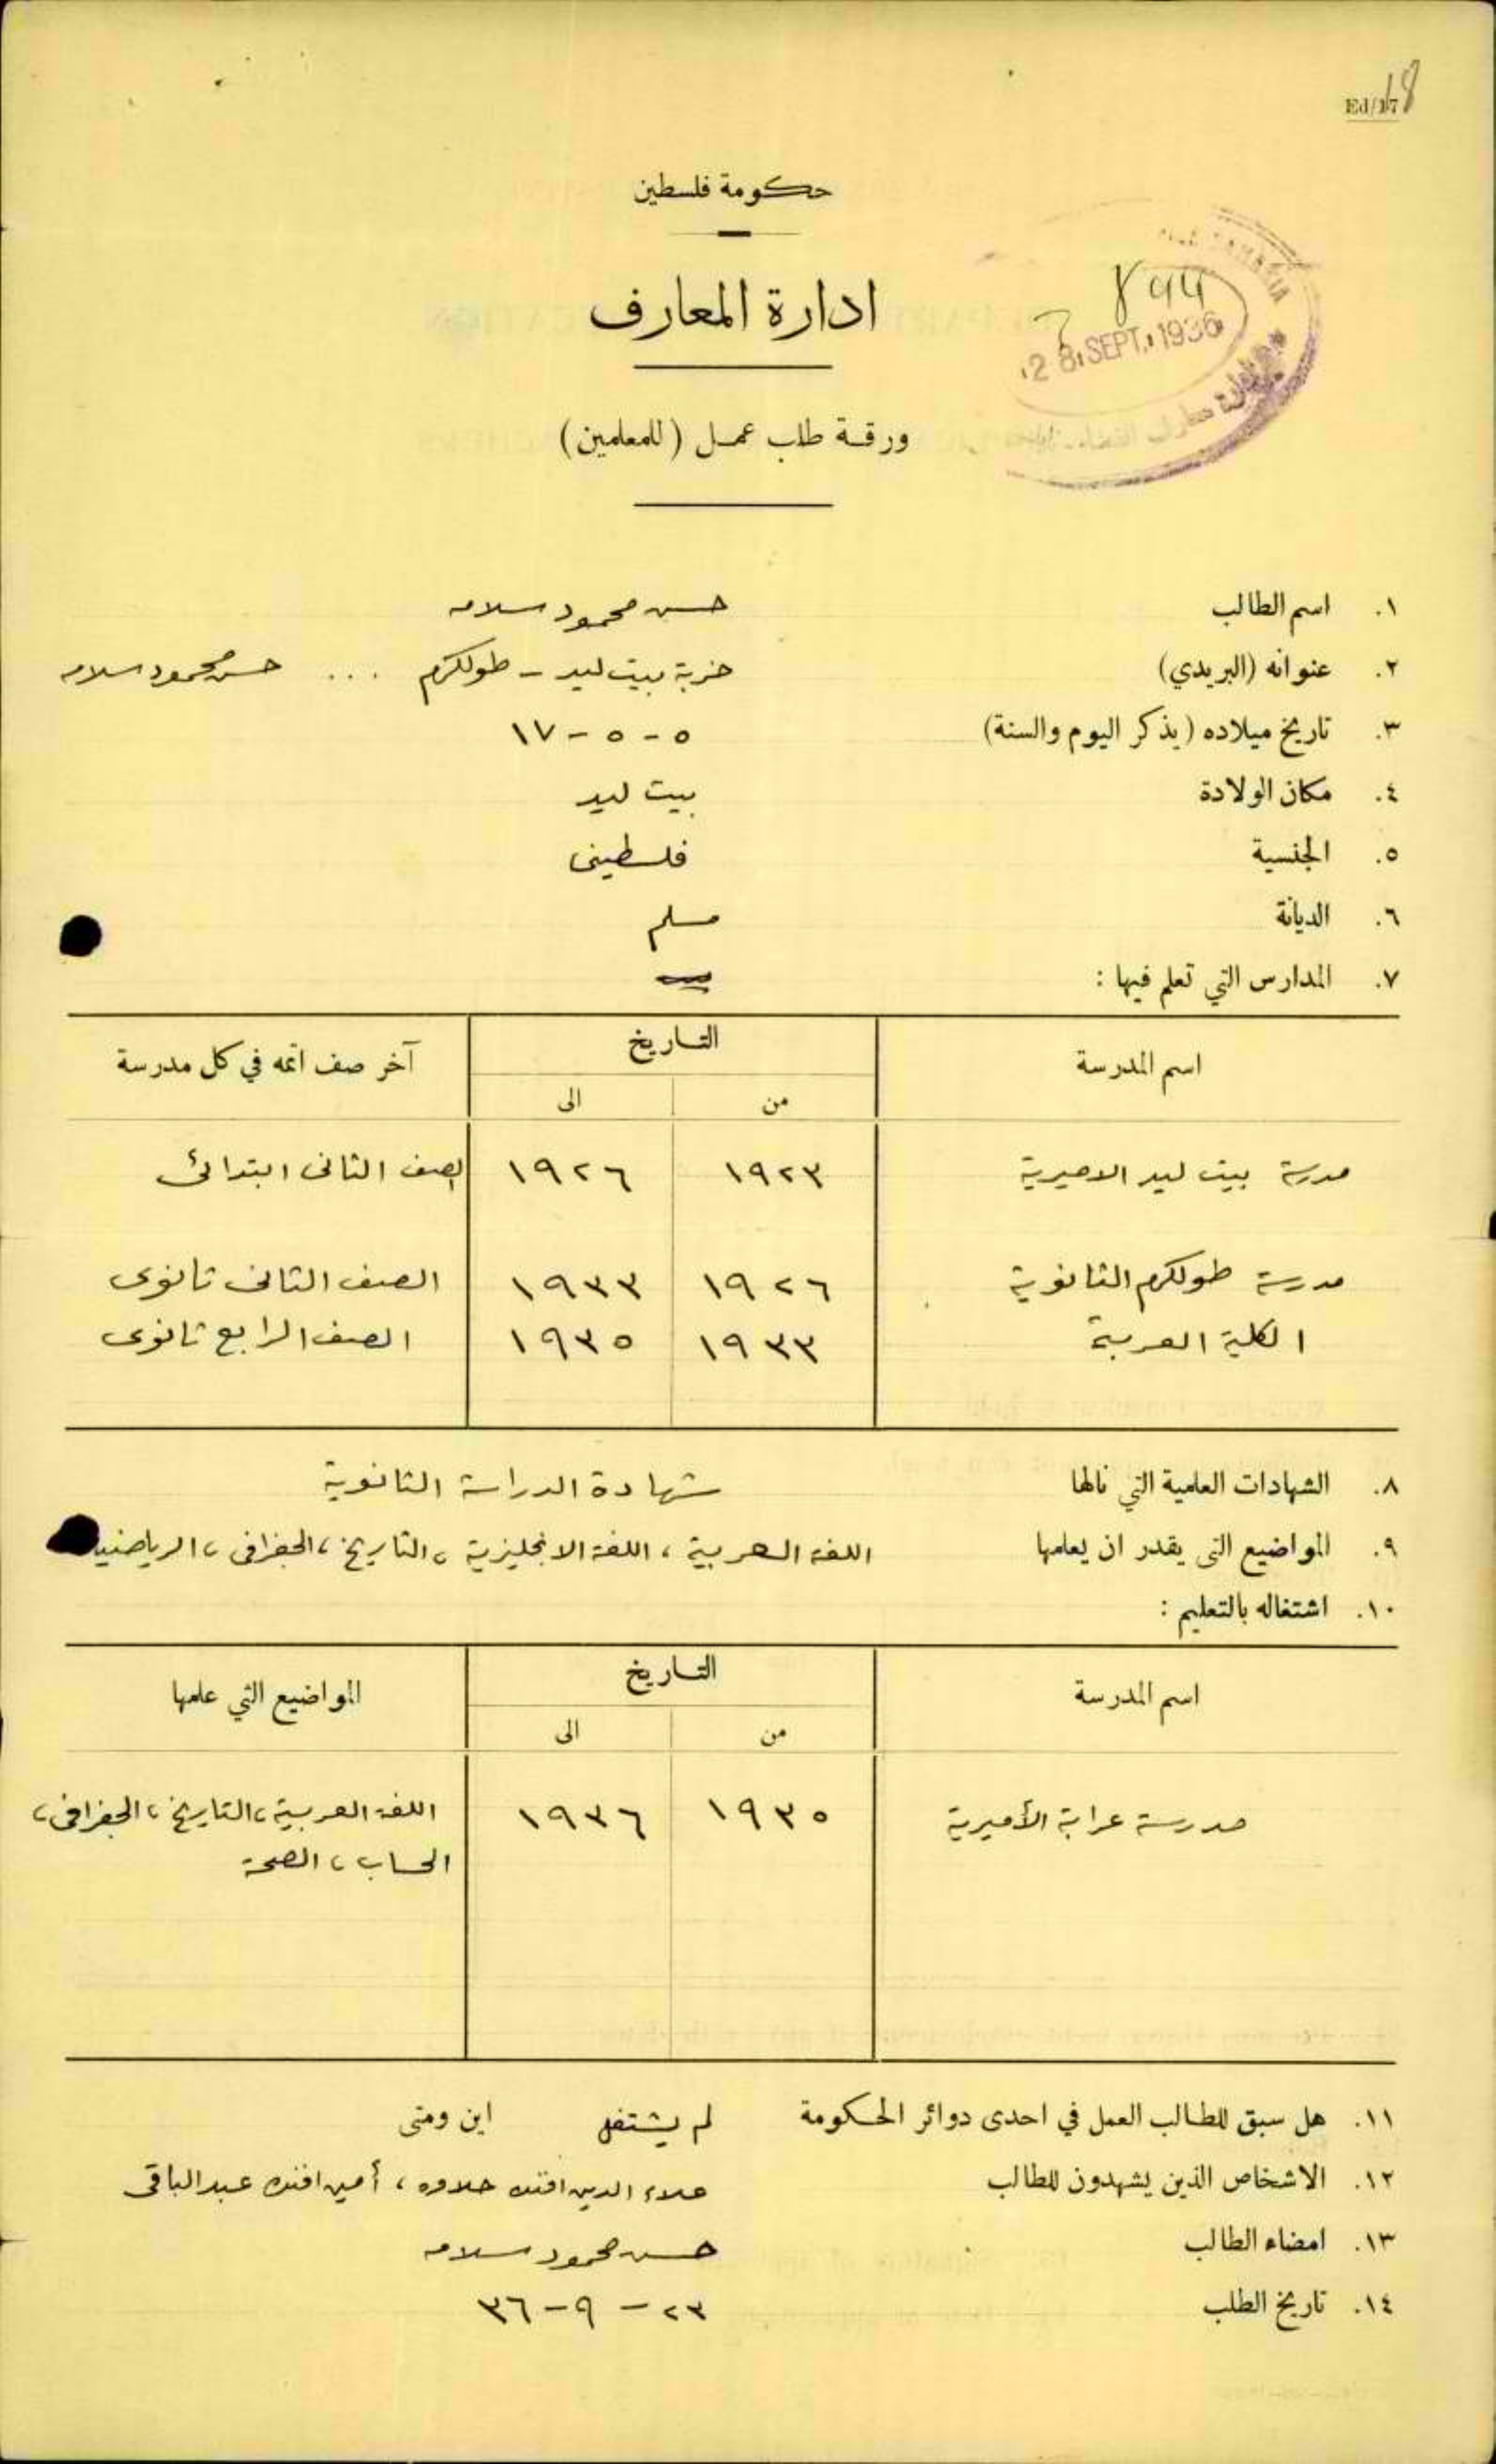 Ed/17
18
حكومة فلسطين
ادارة المعارف
894
28 SEPT. 1936
ورقة طلب عمل (للمعلمين)
١. اسم الطالب حسن محمود سلامه
٢. عنوانه (البريدي) خربة بيت ليد - طولكرم ... حسن محمود سلامه
٣. تاريخ ميلاده (يذكر اليوم والسنة) ٥ - ٥ - ١٧
٤. مكان الولادة بيت ليد
٥. الجنسية فلسطيني
٦. الديانة مسلم
٧. المدارس التي تعلم فيها :
اسم المدرسة التاريخ آخر صف اتمه في كل مدرسة
من الى
مدرسة بيت ليد الاميرية ١٩٢٣ ١٩٢٦ الصف الثاني ابتدائي
مدرسة طولكرم الثانوية ١٩٢٦ ١٩٣٣ الصف الثاني ثانوي
الكلية العربية ١٩٣٣ ١٩٣٥ الصف الرابع ثانوي
٨. الشهادات العلمية التي نالها شهادة الدراسة الثانوية
٩. المواضيع التي يقدر ان يعلمها اللغة العربية ، اللغة الانجليزية ، التاريخ ، الجغرافي ،
١٠. اشتغاله بالتعليم :
اسم المدرسة التاريخ المواضيع التي علمها
من الى
مدرسة عرابة الأميرية ١٩٣٥ ١٩٣٦ اللغة العربية ، التاريخ ، الجغرافي ،
الحساب ، الصحة
١١. هل سبق للطالب العمل في احدى دوائر الحكومة لم يشتغل اين ومتى
١٢. الاشخاص الذين يشهدون للطالب علاء الدين افندي حلاوه ، أمين افندي عبد الباقي
١٣. امضاء الطالب حسن محمود سلامه
١٤. تاريخ الطلب ٢٣ - ٩ - ٣٦